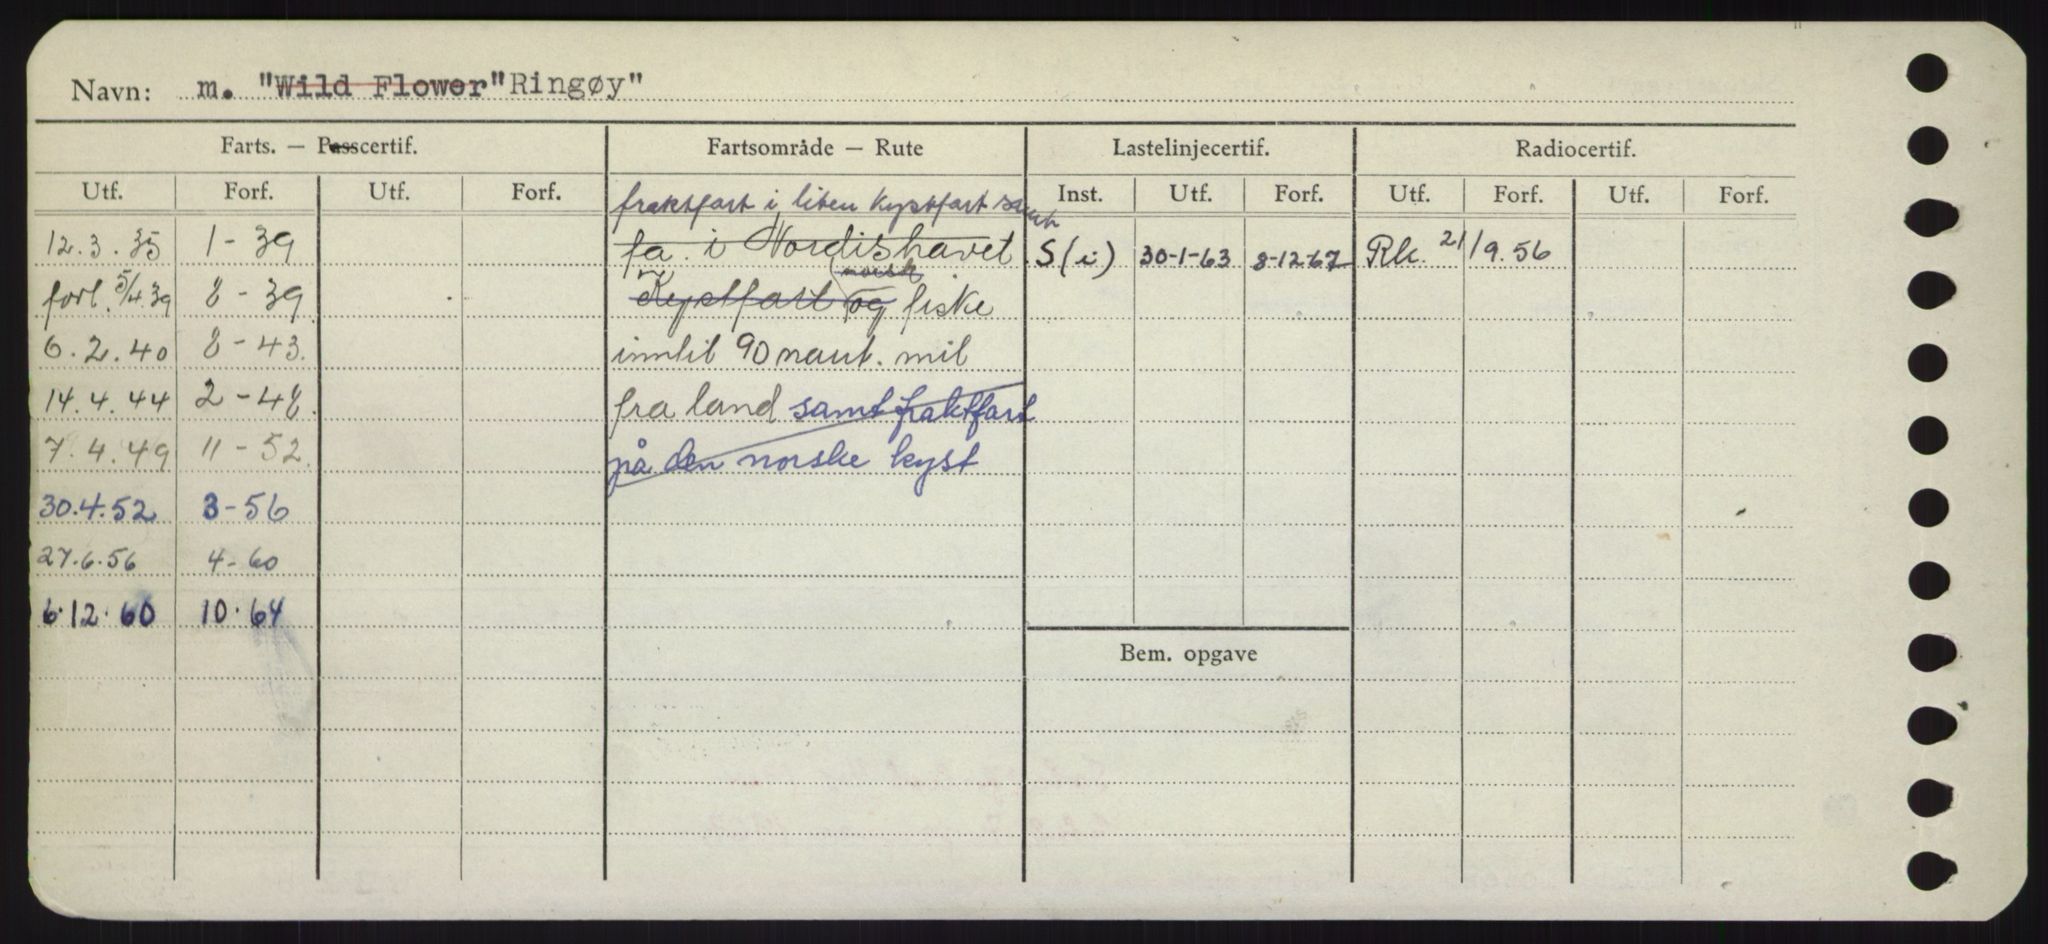 Navn: m. "Wild Flower" Ringøy"
Farts. — Passcertif. Fartsområde — Rute Lastelinjecertif. Radiocertif.
Utf. Forf. Utf. Forf. Inst. Utf. Forf. Utf. Forf. Utf. Forf.
fraktfart i liten kystfart samt
12.3.35 1-39 fa. i Nordishavet S(i) 30-1-63 8-12-67 Rk. 21/9.56
norsk
forl. 5/4.39 8-39 Kystfart og fiske
6.2.40 8-43. inntil 90 naut. mil
14.4.44 2-48. fra land samt fraktfart
7.4.49 11-52. på den norske kyst
30.4.52 3-56
27.6.56 4-60
6.12.60 10.64
Bem. opgave